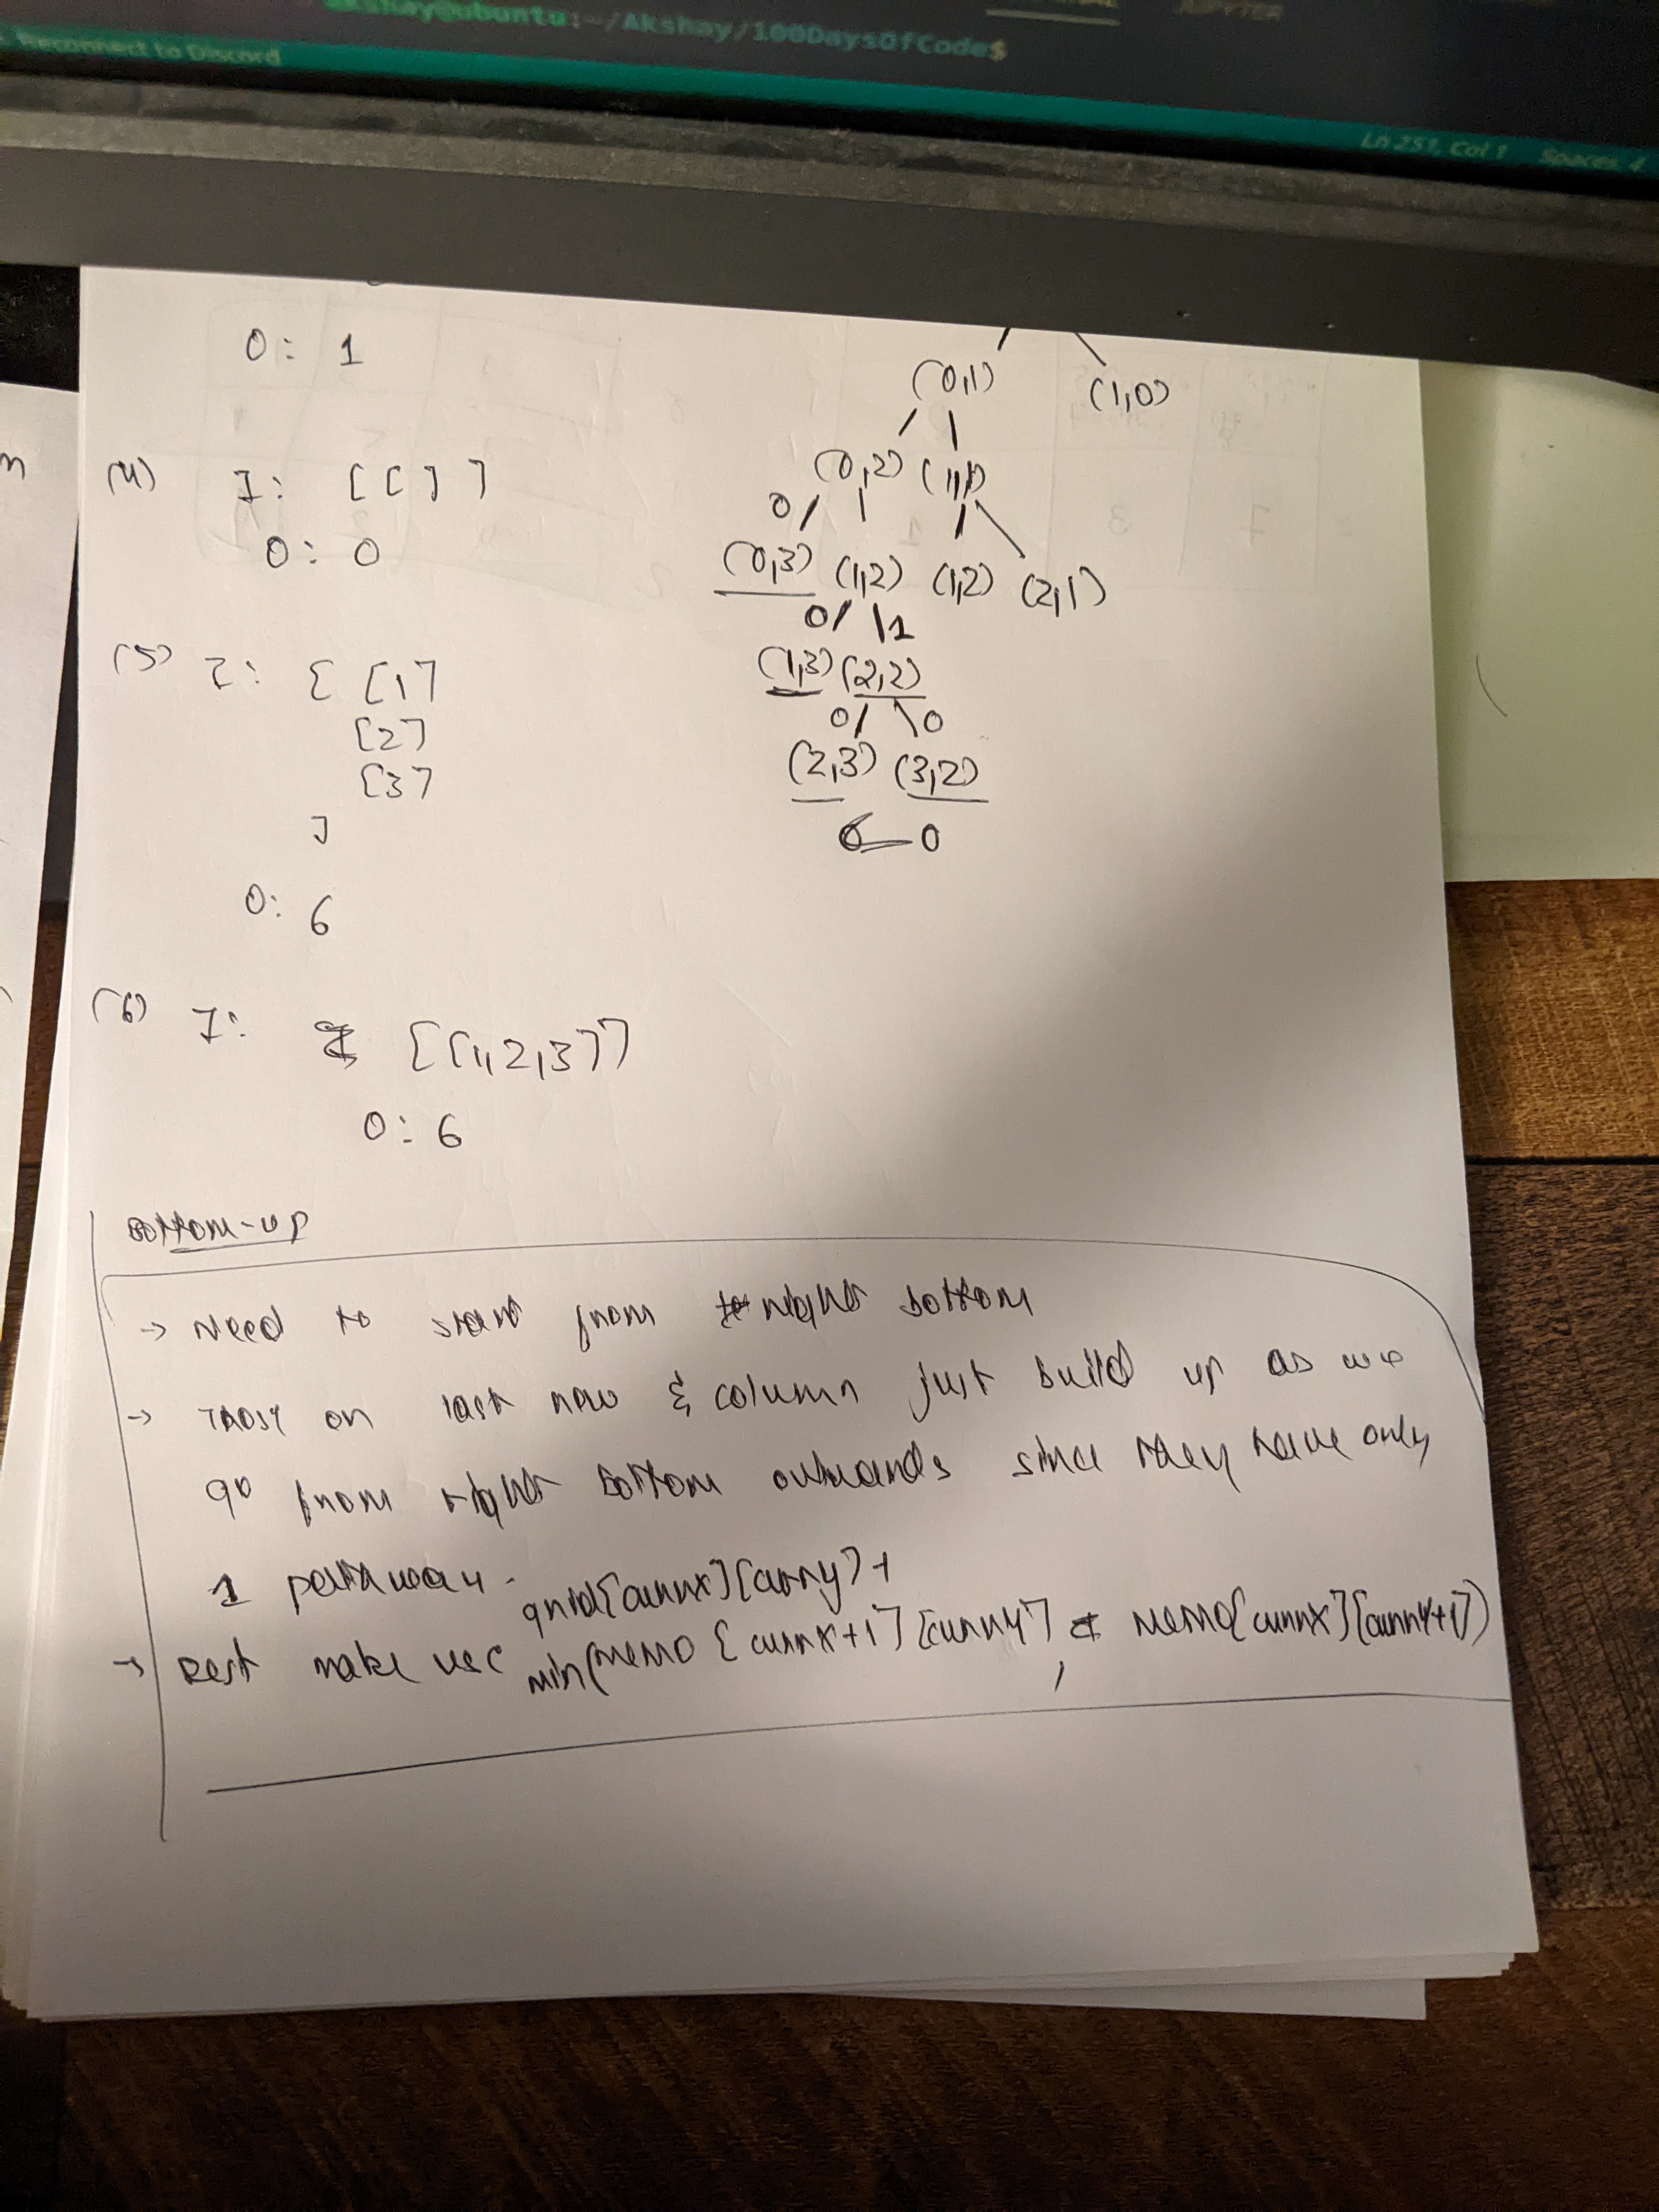 akshay@ubuntu:~/Akshay/100DaysOfCode$
JUPYTER
Reconnect to Discord
Ln 251, Col 1 Spaces: 4
O: 1
(4) I: [ [ ] ]
O: 0
(5) I: [ [1]
[2]
[3]
]
O: 6
(6) I: [[1,2,3]]
O: 6
(0,1) (1,0)
(0,2) (1,1)
0
(0,3) (1,2) (1,2) (2,1)
0 1
(1,3) (2,2)
0 0
(2,3) (3,2)
0
Bottom-up
→ Need to start from right bottom
→ Those on last row & column just build up as we
go from right bottom outwards since they have only
1 pathway.
grid[currx][curry] +
→ Rest make use min(memo[currx+1][curry], memo[currx][curry+1])